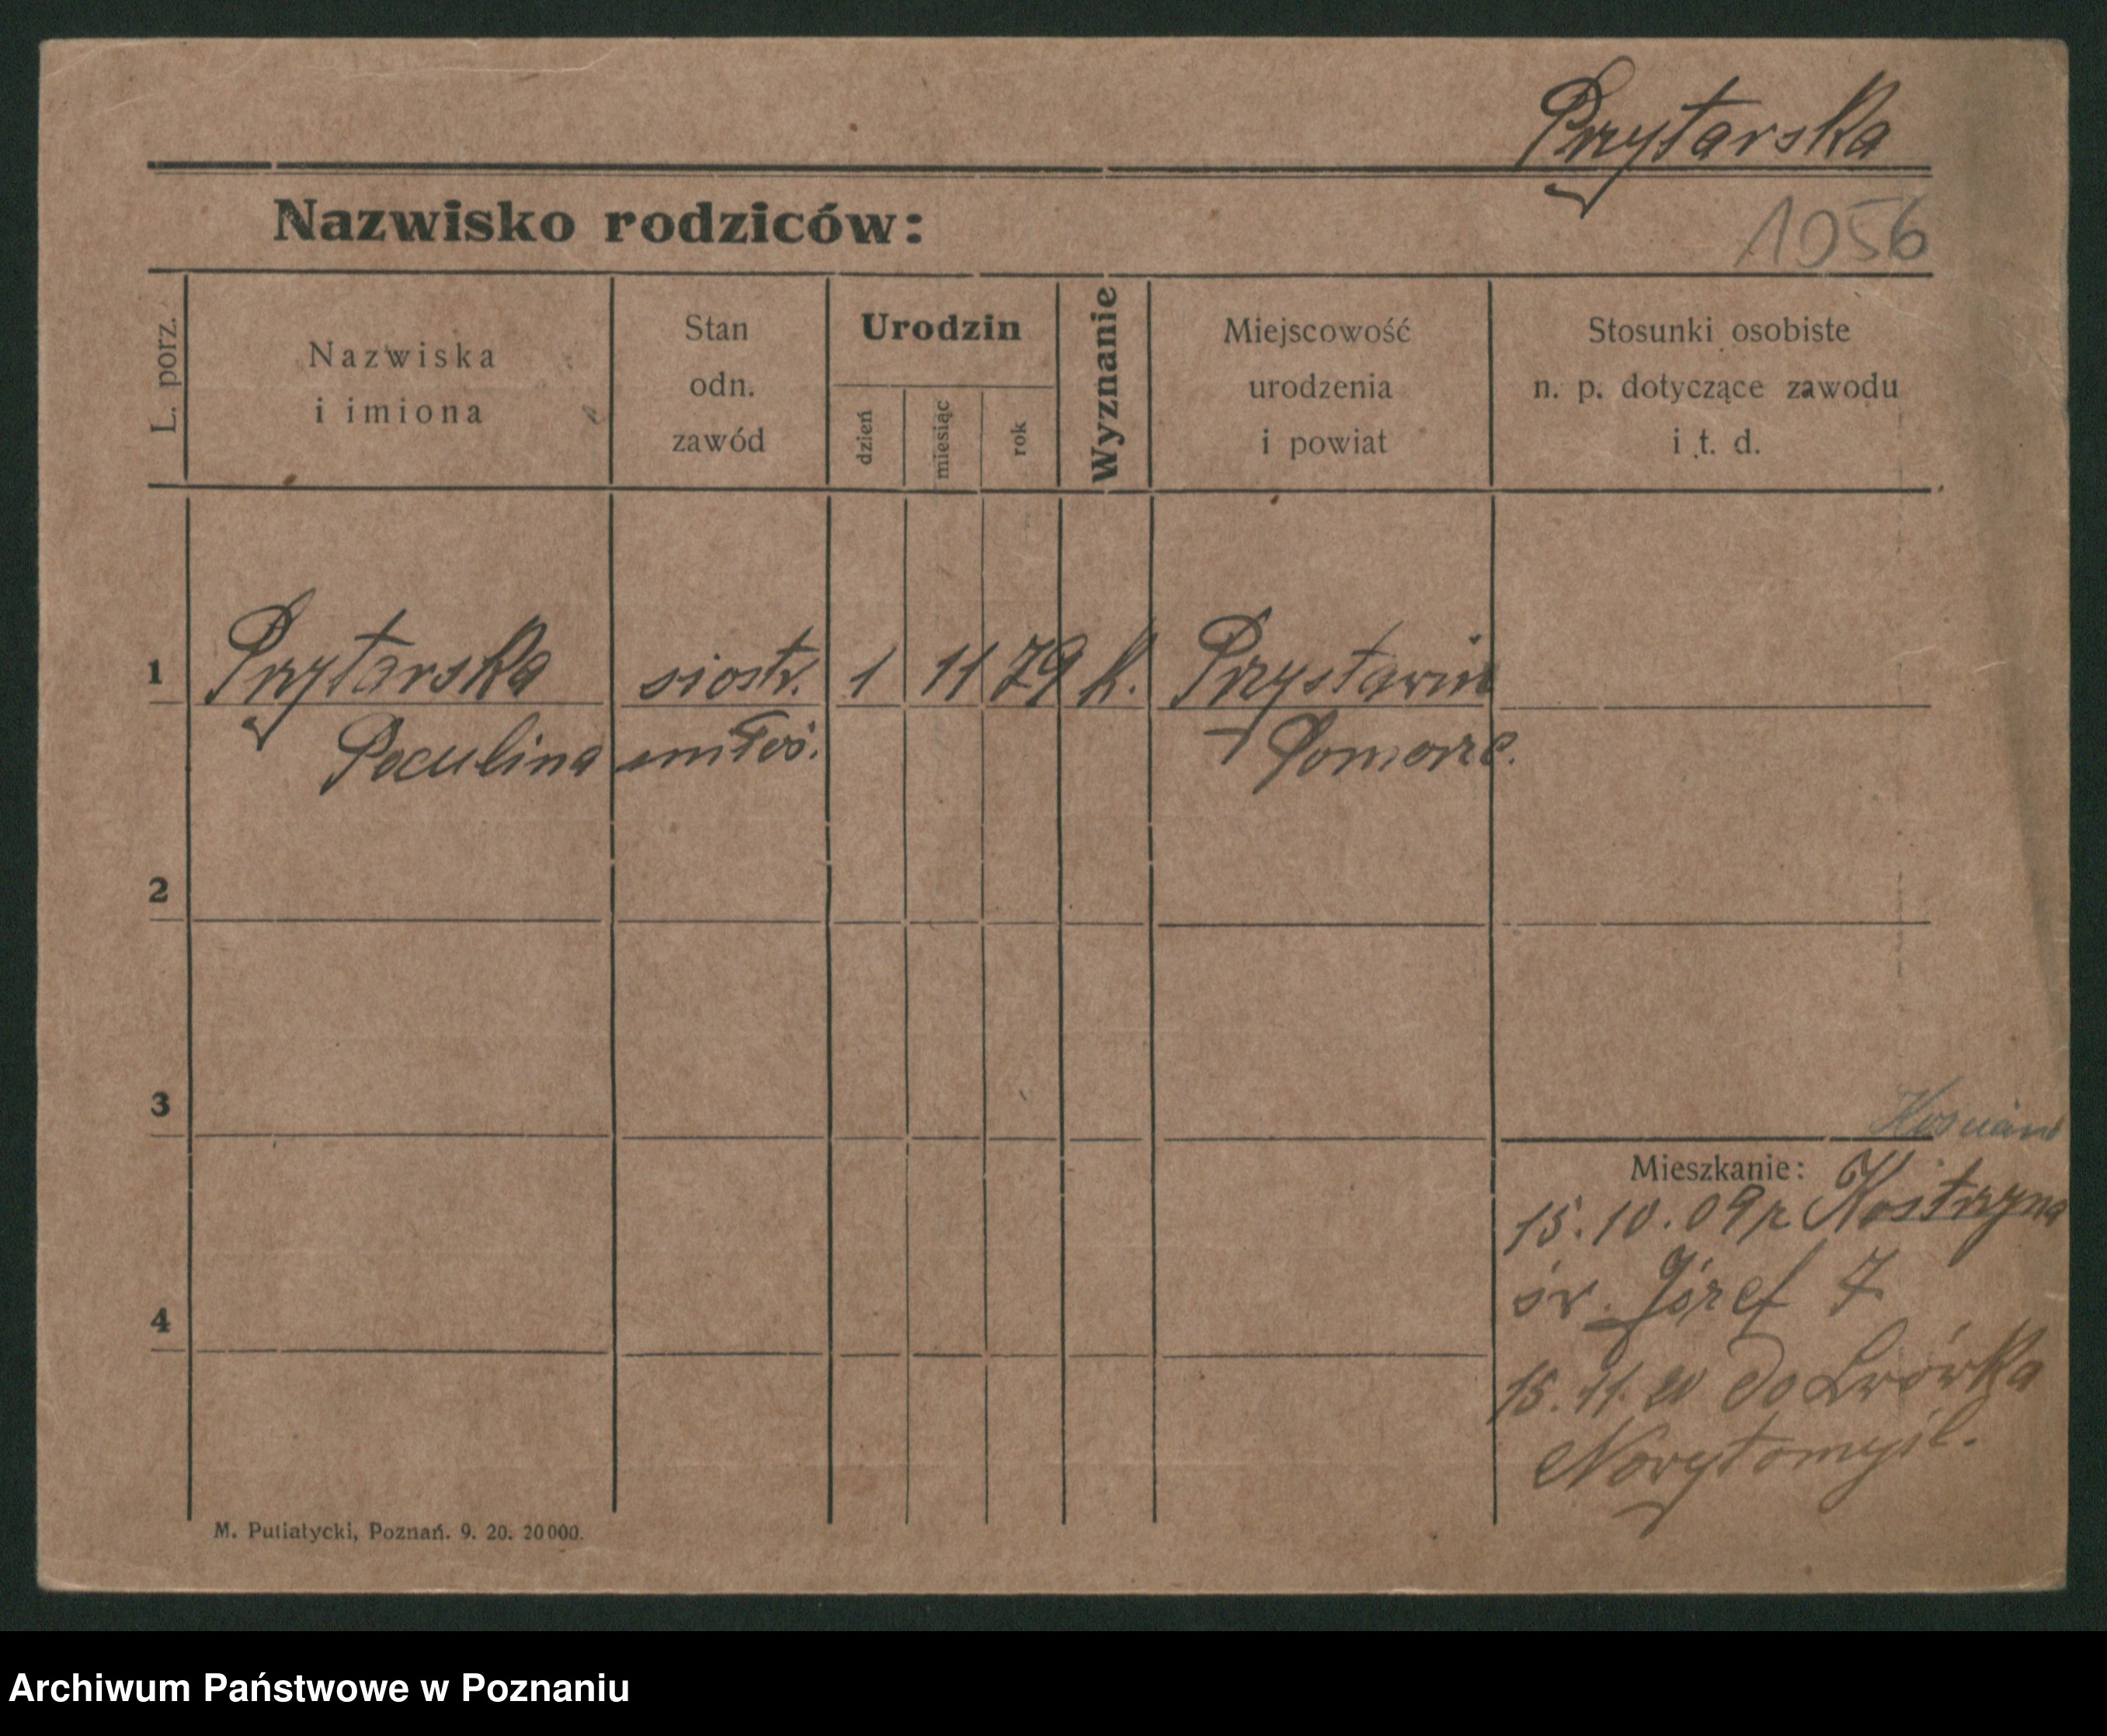 Przytarska
Nazwisko rodziców:
1056
L. porz.
Nazwiska
i imiona
Stan
odn.
zawód
Urodzin
dzień
miesiąc
rok
Wyznanie
Miejscowość
urodzenia
i powiat
Stosunki osobiste
n. p. dotyczące zawodu
i t. d.
1 Przytarska siostr. 1 11 79 k.
Paulina miłoś. Pomorze.
2
3
Mieszkanie:
15.10.09 z Kostrzyna
św. Józef 7
4
15.11.20 do Lwówka
Nowytomyśl.
M. Putiatycki, Poznań. 9. 20. 20000.
Archiwum Państwowe w Poznaniu